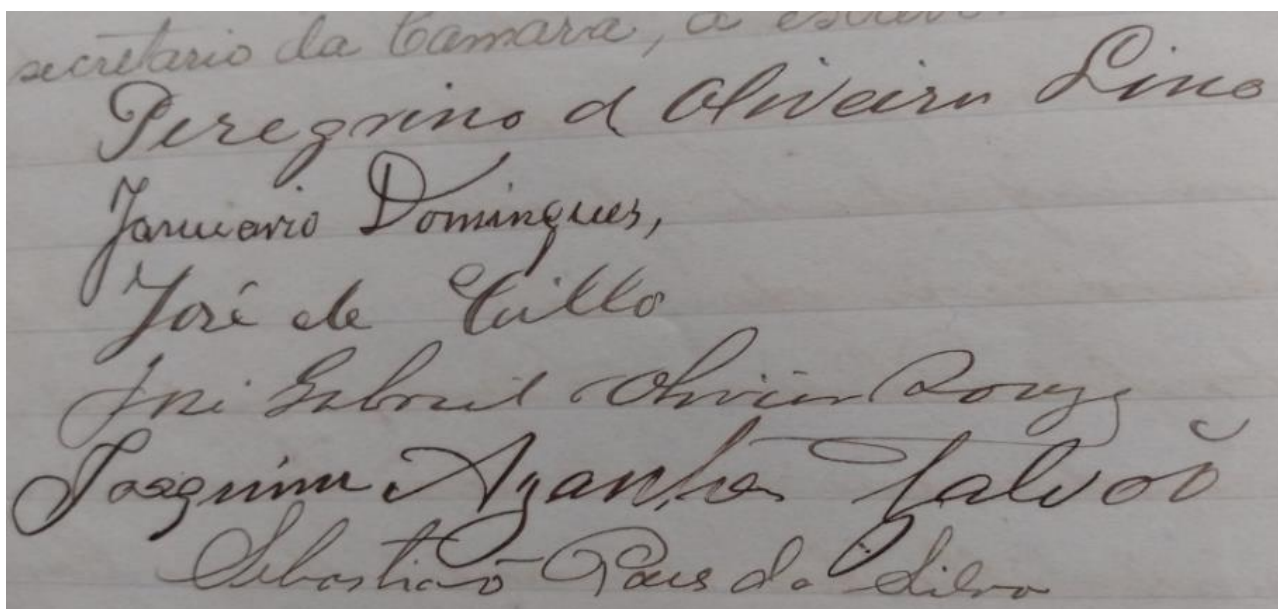 secretario da Camara, o escrevi
Peregrino d Oliveira Lino
Januario Domingues,
José de Cillo
José Gabriel Oliveira Souza
Joaquim Azanha Galvão
Sebastião Paes da Silva